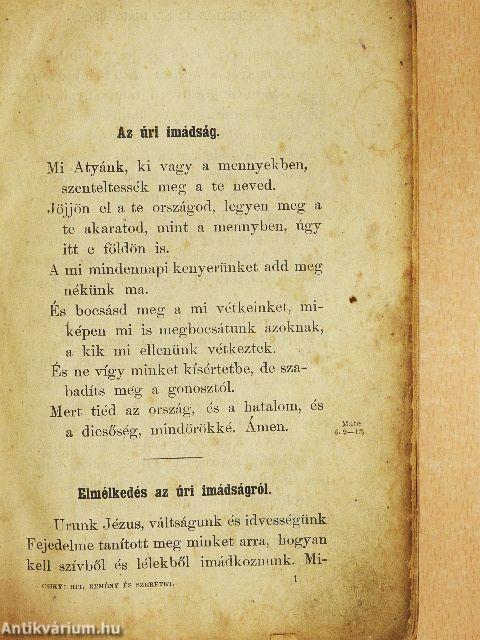 Az úri imádság.
Mi Atyánk, ki vagy a mennyekben,
szenteltessék meg a te neved.
Jöjjön el a te országod, legyen meg a
te akaratod, mint a mennyben, úgy
itt e földön is.
A mi mindennapi kenyerünket add meg
nékünk ma.
És bocsásd meg a mi vétkeinket, mi-
képen mi is megbocsátunk azoknak,
a kik mi ellenünk vétkeztek.
És ne vígy minket kísértetbe, de sza-
badíts meg a gonosztól.
Mert tiéd az ország, és a hatalom, és
a dicsőség, mindörökké. Ámen.
Máté
6. 9–13.
Elmélkedés az úri imádságról.
Urunk Jézus, váltságunk és idvességünk
Fejedelme tanított meg minket arra, hogyan
kell szívből és lélekből imádkoznunk. Mi-
CSIKY: HIT, REMÉNY ÉS SZERETET.
1
Antikvárium.hu